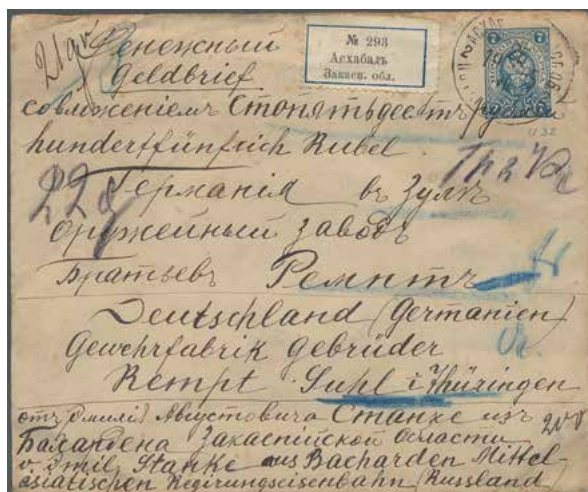 Денежный
Geldbrief
№ 293
Асхабадъ
Закасп. обл.
7 7
совложеніемъ Стопятьдесятъ рублей
hundertfünfzich Rubel.
Германія въ Зулъ
оружейный заводъ
Братьевъ Ремптъ
Deutschland (Germanien)
Gewehrfabrik Gebrüder
Rempt Suhl i Thüringen
отъ Эмилія Августовича Станке изъ
Бахардена Закаспійской области
v. Emil Stanke aus Bacharden Mittel-
asiatischen Regirungseisenbahn (Russland)